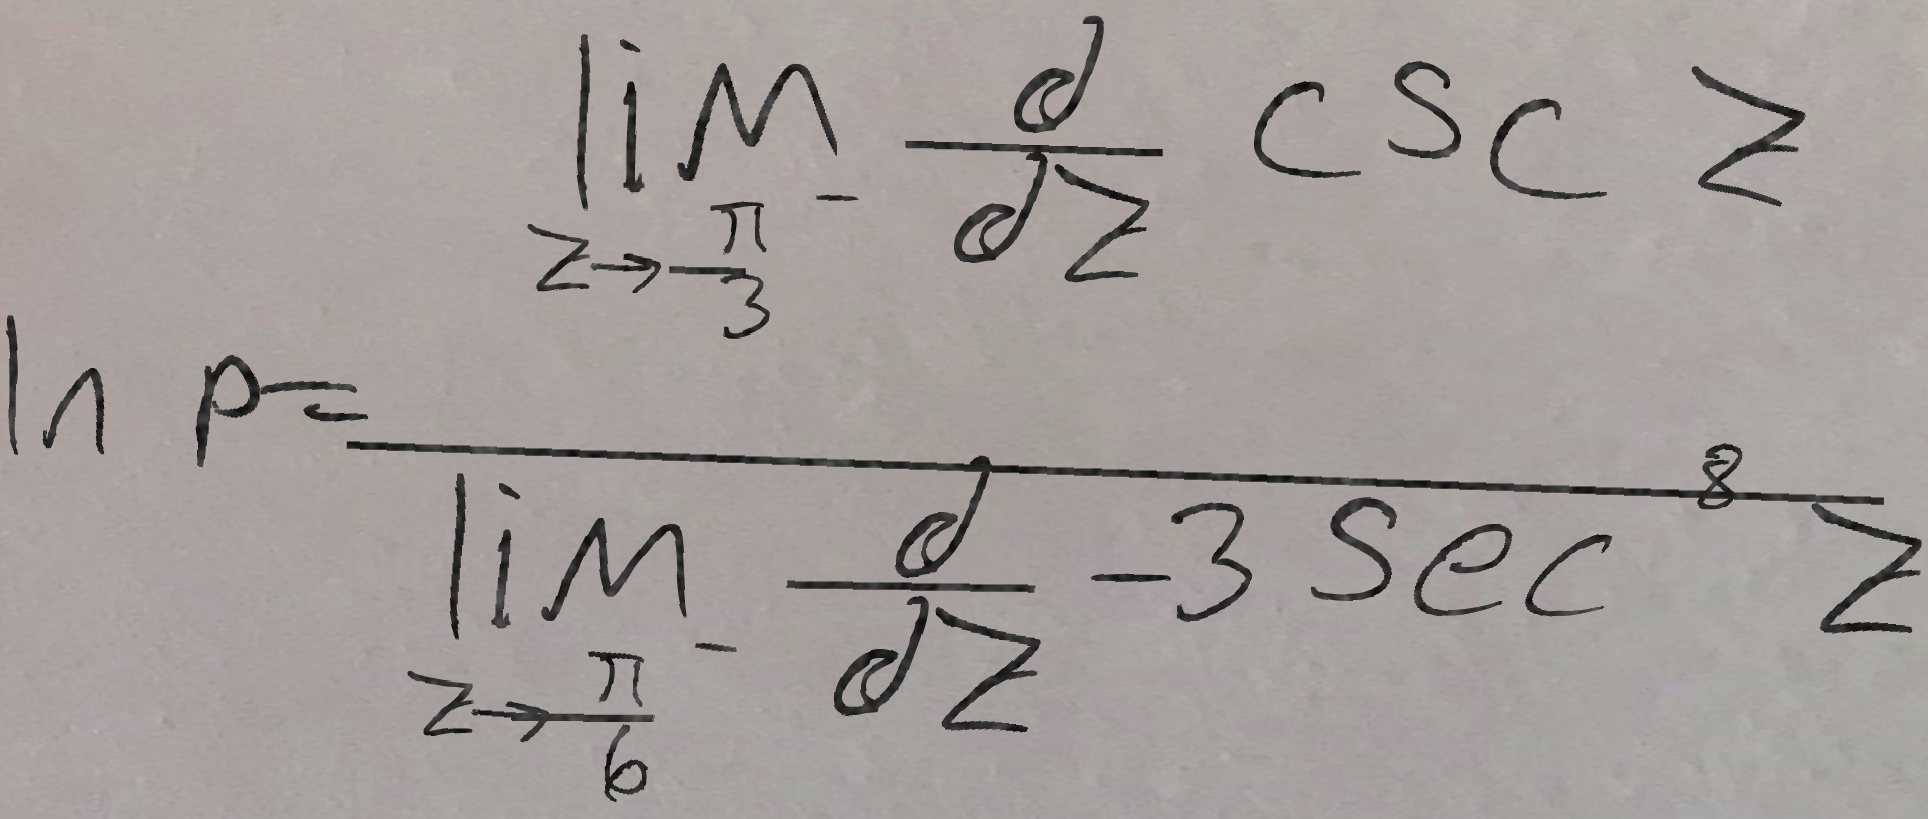 lim z→π/3⁻ d/dz csc z
ln p=
lim z→π/6⁻ d/dz -3 sec⁸ z